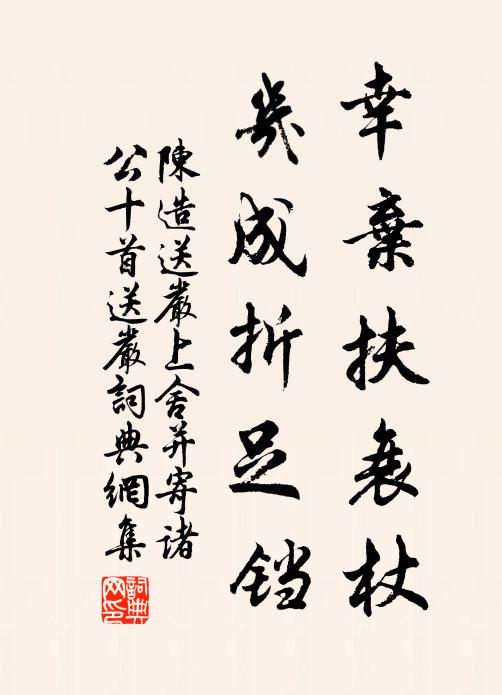 幸棄扶衰杖
幾成折足铛
陳造送嚴上舍并寄諸
公十首送嚴詞典網集
詞典網印